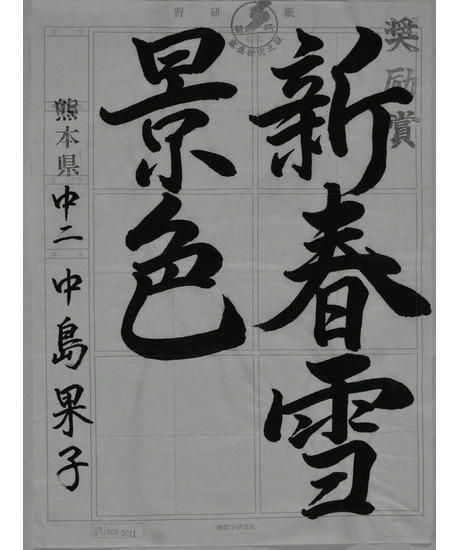 新春雪
景色
熊本県
中二
中島果子
奨励賞
習研紙
008-5011